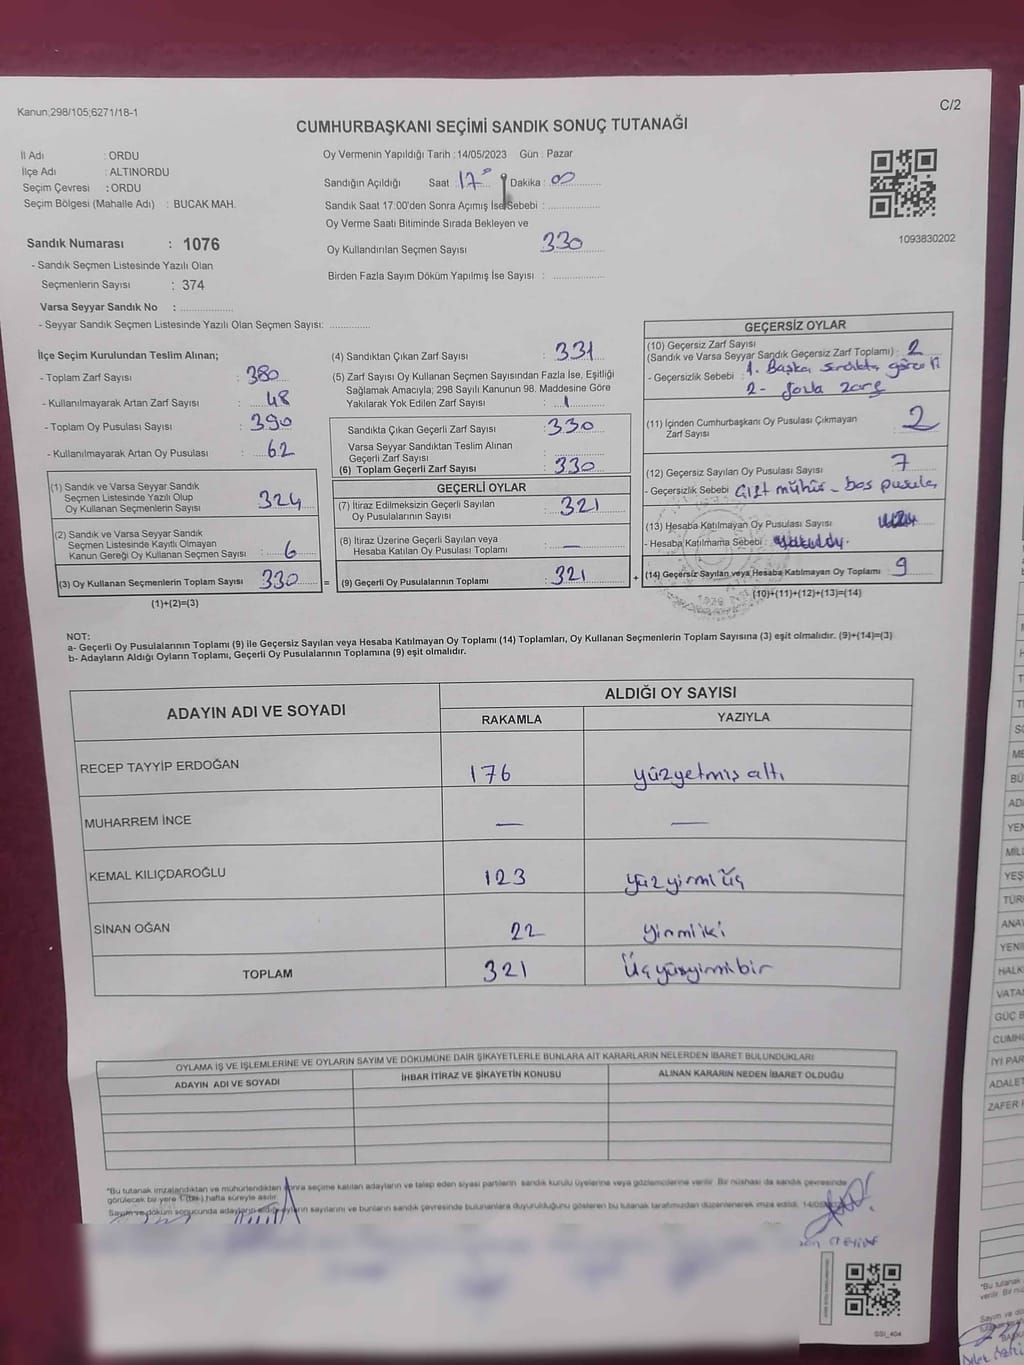 Kanun;298/105;6271/18-1
C/2
CUMHURBAŞKANI SEÇİMİ SANDIK SONUÇ TUTANAĞI
İl Adı : ORDU
İlçe Adı : ALTINORDU
Seçim Çevresi : ORDU
Seçim Bölgesi (Mahalle Adı) : BUCAK MAH.
Sandık Numarası : 1076
- Sandık Seçmen Listesinde Yazılı Olan
Seçmenlerin Sayısı : 374
Varsa Seyyar Sandık No :
- Seyyar Sandık Seçmen Listesinde Yazılı Olan Seçmen Sayısı:
Oy Vermenin Yapıldığı Tarih : 14/05/2023 Gün : Pazar
Sandığın Açıldığı Saat : 17 Dakika : 00
Sandık Saat 17:00'den Sonra Açımış İse Sebebi :
Oy Verme Saati Bitiminde Sırada Bekleyen ve
Oy Kullandırılan Seçmen Sayısı 330
Birden Fazla Sayım Döküm Yapılmış İse Sayısı :
1093830202
İlçe Seçim Kurulundan Teslim Alınan;
- Toplam Zarf Sayısı : 380
- Kullanılmayarak Artan Zarf Sayısı : 48
- Toplam Oy Pusulası Sayısı : 390
- Kullanılmayarak Artan Oy Pusulası : 62
(1) Sandık ve Varsa Seyyar Sandık
Seçmen Listesinde Yazılı Olup
Oy Kullanan Seçmenlerin Sayısı : 324
(2) Sandık ve Varsa Seyyar Sandık
Seçmen Listesinde Kayıtlı Olmayan
Kanun Gereği Oy Kullanan Seçmen Sayısı : 6
(3) Oy Kullanan Seçmenlerin Toplam Sayısı 330 =
(1)+(2)=(3)
(4) Sandıktan Çıkan Zarf Sayısı : 331
(5) Zarf Sayısı Oy Kullanan Seçmen Sayısından Fazla İse, Eşitliği
Sağlamak Amacıyla; 298 Sayılı Kanunun 98. Maddesine Göre
Yakılarak Yok Edilen Zarf Sayısı : 1
Sandıkta Çıkan Geçerli Zarf Sayısı : 330
Varsa Seyyar Sandıktan Teslim Alınan
Geçerli Zarf Sayısı :
(6) Toplam Geçerli Zarf Sayısı : 330
GEÇERLİ OYLAR
(7) İtiraz Edilmeksizin Geçerli Sayılan
Oy Pusulalarının Sayısı : 321
(8) İtiraz Üzerine Geçerli Sayılan veya
Hesaba Katılan Oy Pusulası Toplamı : —
(9) Geçerli Oy Pusulalarının Toplamı : 321 +
GEÇERSİZ OYLAR
(10) Geçersiz Zarf Sayısı
(Sandık ve Varsa Seyyar Sandık Geçersiz Zarf Toplamı) : 2
- Geçersizlik Sebebi : 1. Başka sandıkta görevli
2- fazla zarf
(11) İçinden Cumhurbaşkanı Oy Pusulası Çıkmayan
Zarf Sayısı 2
(12) Geçersiz Sayılan Oy Pusulası Sayısı 7
- Geçersizlik Sebebi Çift mühür - boş pusula
(13) Hesaba Katılmayan Oy Pusulası Sayısı
- Hesaba Katılmama Sebebi :
(14) Geçersiz Sayılan veya Hesaba Katılmayan Oy Toplamı 9
(10)+(11)+(12)+(13)=(14)
NOT:
a- Geçerli Oy Pusulalarının Toplamı (9) ile Geçersiz Sayılan veya Hesaba Katılmayan Oy Toplamı (14) Toplamları, Oy Kullanan Seçmenlerin Toplam Sayısına (3) eşit olmalıdır. (9)+(14)=(3)
b- Adayların Aldığı Oyların Toplamı, Geçerli Oy Pusulalarının Toplamına (9) eşit olmalıdır.
ADAYIN ADI VE SOYADI
ALDIĞI OY SAYISI
RAKAMLA YAZIYLA
RECEP TAYYİP ERDOĞAN 176 yüzyetmiş altı
MUHARREM İNCE — —
KEMAL KILIÇDAROĞLU 123 yüzyirmi üç
SİNAN OĞAN 22 yirmiiki
TOPLAM 321 Üçyüzyirmibir
OYLAMA İŞ VE İŞLEMLERİNE VE OYLARIN SAYIM VE DÖKÜMÜNE DAİR ŞİKAYETLERLE BUNLARA AİT KARARLARIN NELERDEN İBARET BULUNDUKLARI
ADAYIN ADI VE SOYADI İHBAR İTİRAZ VE ŞİKAYETİN KONUSU ALINAN KARARIN NEDEN İBARET OLDUĞU
*Bu tutanak imzalandıktan ve mühürlendikten sonra seçime katılan adayların ve talep eden siyasi partilerin sandık kurulu üyelerine veya gözlemcilerine verilir. Bir nüshası da sandık çevresinde
görülecek bir yere 1 (bir) hafta süreyle asılır.
Sayım ve döküm sonucunda adayların aldığı oyların sayılarını ve bunların sandık çevresinde bulunanlara duyurulduğunu gösteren bu tutanak tarafımızdan düzenlenerek imza edildi.
SSI_404